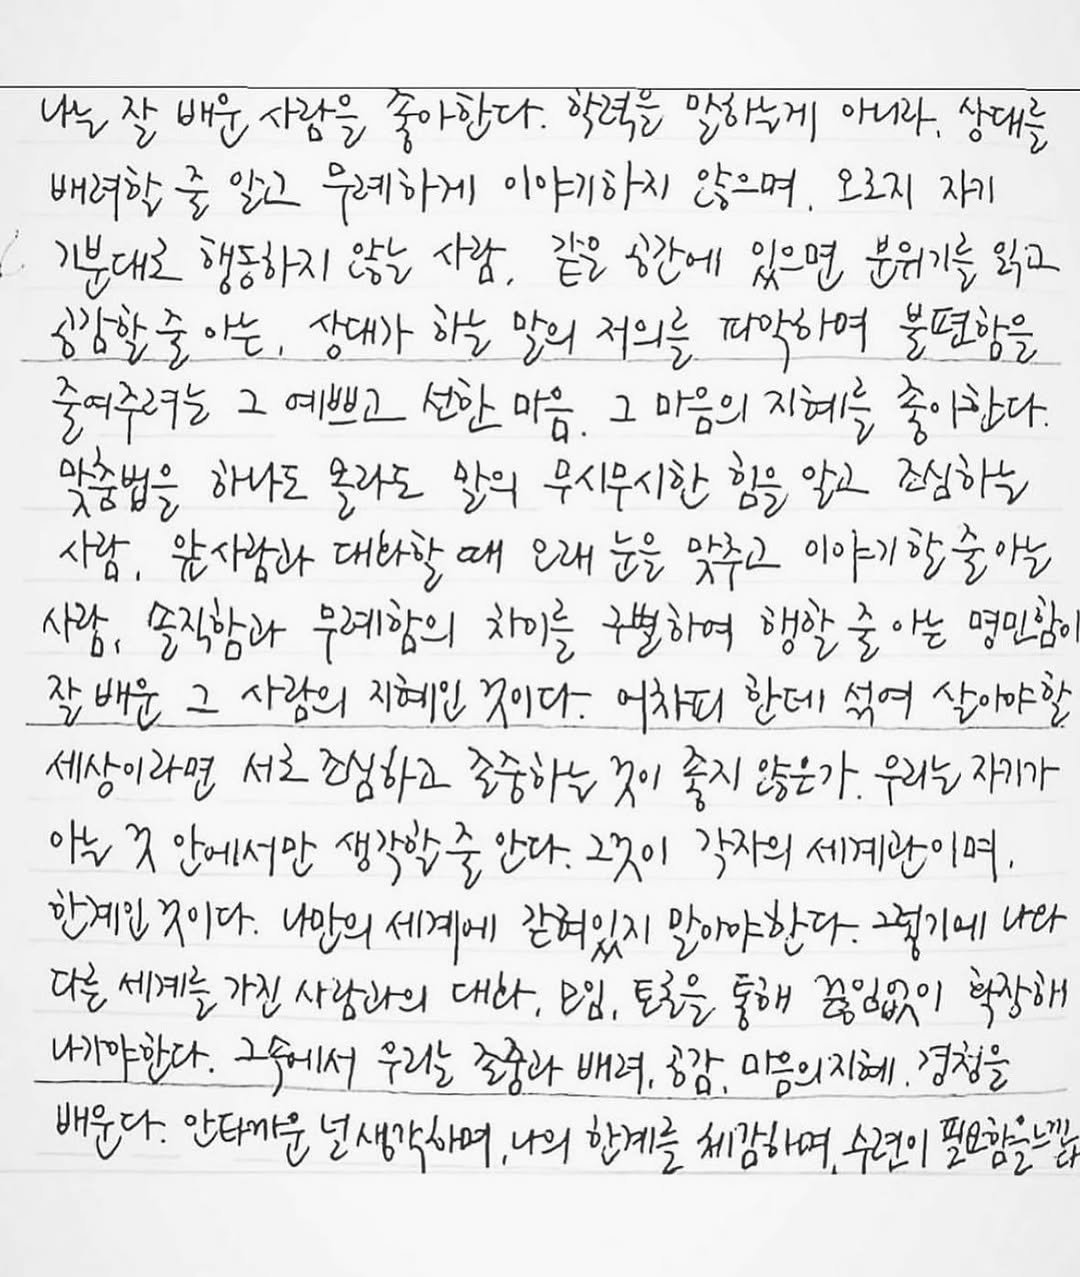 나는 잘 배운 사람을 좋아한다. 학력을 말하는게 아니라, 상대를
배려할 줄 알고 무례하게 이야기하지 않으며, 오로지 자기
기분대로 행동하지 않는 사람, 같은 공간에 있으면 분위기를 읽고
공감할 줄 아는, 상대가 하는 말의 저의를 파악하여 불편함을
줄여주려는 그 예쁘고 선한 마음. 그 마음의 지혜를 좋아한다.
맞춤법을 하나도 몰라도 말의 무시무시한 힘을 알고 조심하는
사람, 앞사람과 대화할 때 오래 눈을 맞추고 이야기할 줄 아는
사람, 솔직함과 무례함의 차이를 구별하여 행할 줄 아는 명민함이
잘 배운 그 사람의 지혜인 것이다. 어차피 한데 섞여 살아야할
세상이라면 서로 조심하고 존중하는 것이 좋지 않은가. 우리는 자기가
아는 것 안에서만 생각할 줄 안다. 그것이 각자의 세계관이며,
한계인 것이다. 나만의 세계에 갇혀있지 말아야한다. 그렇기에 나와
다른 세계를 가진 사람과의 대화, 모임, 토론을 통해 끊임없이 확장해
나가야한다. 그속에서 우리는 존중과 배려, 공감, 마음의지혜, 경청을
배운다. 안타까운 널 생각하며, 나의 한계를 체감하며, 수련이 필요함을느낀다